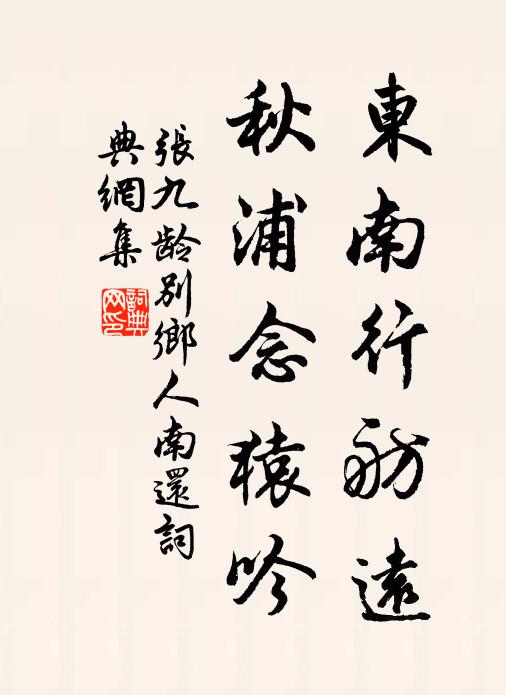 東南行舫遠
秋浦念猿吟
張九龄别鄉人南還詞
典網集
詞典网印